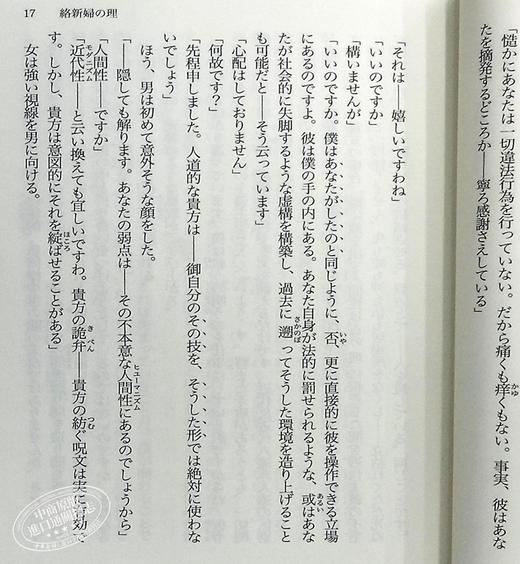 17　絡新婦の理
「慥かにあなたは一切違法行為を行っていない。だから痛くも痒くもない。事実、彼はあな
たを摘発するどころか――寧ろ感謝さえしている」
「それは――嬉しいですわね」
「いいのですか」
「構いませんが」
「いいのですか。僕はあなたがしたのと同じように、否、更に直接的に彼を操作できる立場
にあるのですよ。彼は僕の手の内にある。あなた自身が法的に罰せられるような、或はあな
たが社会的に失脚するような虚構を構築し、過去に遡ってそうした環境を造り上げること
も可能だと――そう云っています」
「心配はしておりません」
「何故です？」
「先程申しました。人道的な貴方は――御自分のその技を、そうした形では絶対に使わな
いでしょう」
ほう、男は初めて意外そうな顔をした。
「――隠しても解ります。あなたの弱点は――その不本意な人間性にあるのでしょうから」
「人間性――ですか」
「近代性――と云い換えても宜しいですわ。貴方の詭弁――貴方の紡ぐ呪文は実に有効で
す。しかし、貴方は意図的にそれを綻ばせることがある」
女は強い視線を男に向ける。
かゆ
いや
あるい
さかのぼ
ヒューマニズム
モダニズム
きべん
つむ
ほころ
中商原版